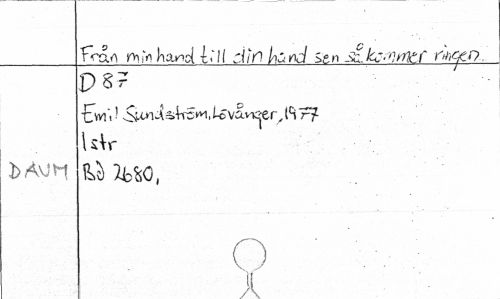 Från min hand till din hand sen så kommer ringen.
D 87
Emil Sundström, Lövånger, 1977
1 str
DAUM Bd 2680,